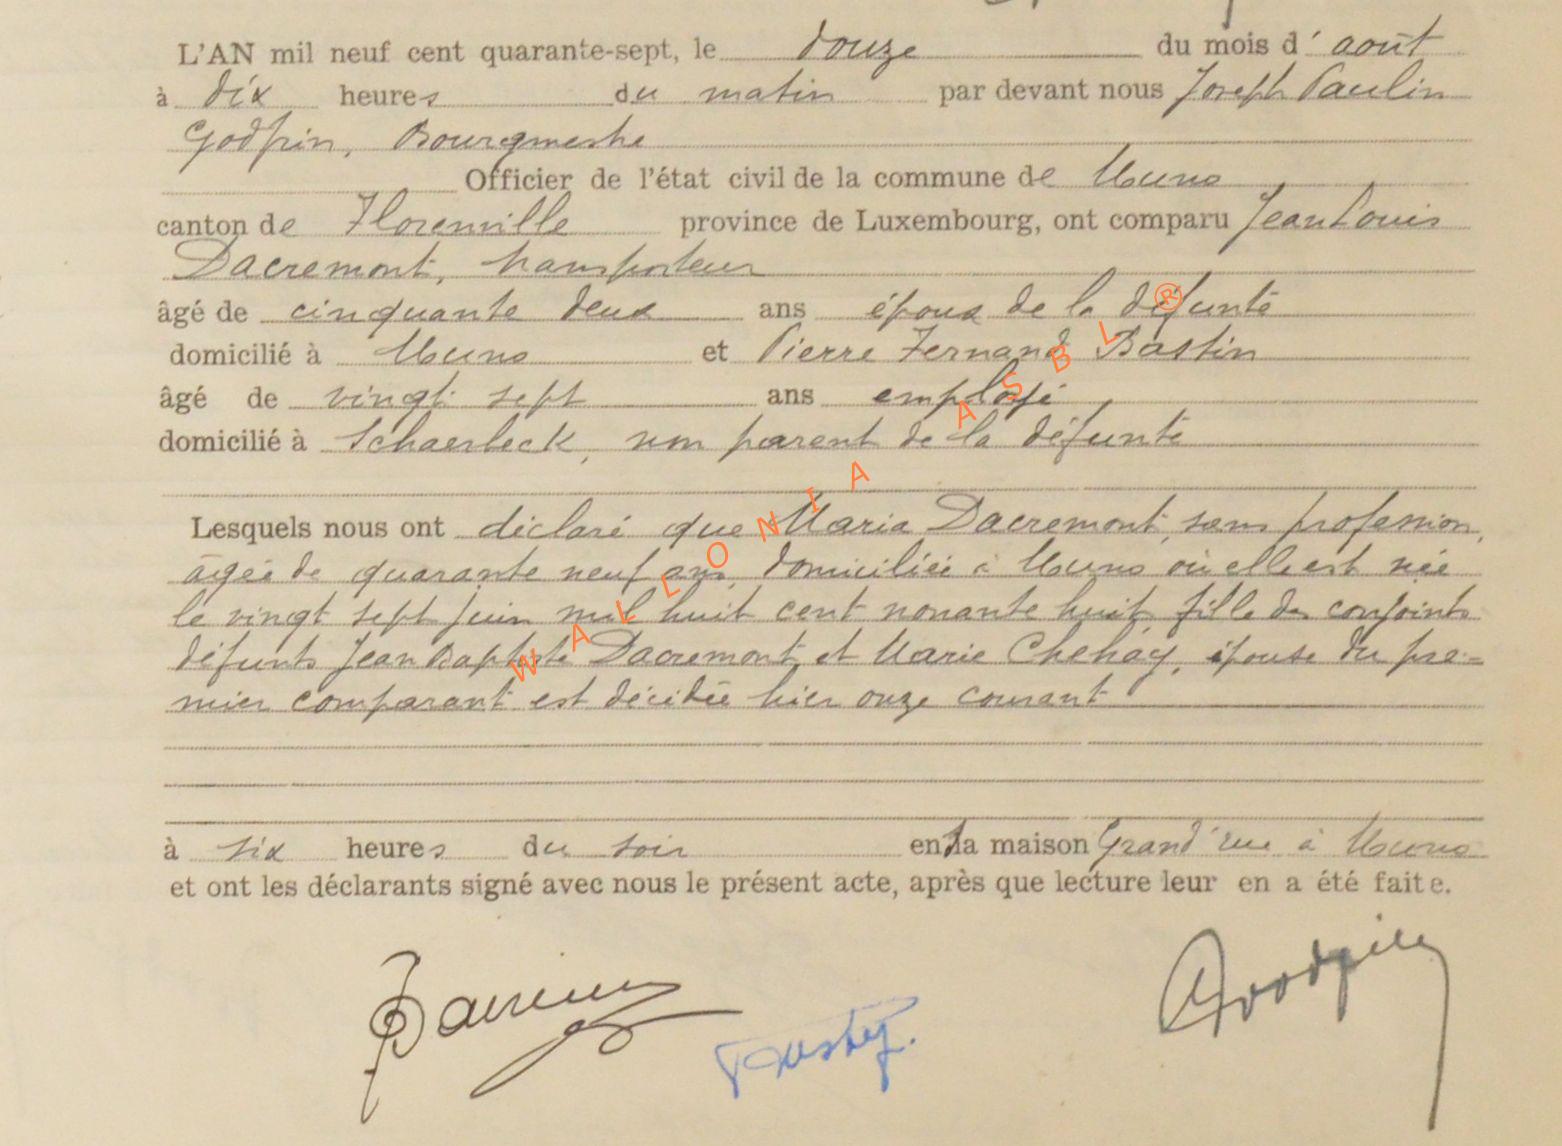 L'AN mil neuf cent quarante-sept, le douze du mois d' août
à dix heures du matin par devant nous Joseph Paulin
Godfrin, Bourgmestre
Officier de l'état civil de la commune de Muno
canton de Florenville province de Luxembourg, ont comparu Jean Louis
Dacremont, transporteur
âgé de cinquante deux ans époux de la défunte
domicilié à Muno et Pierre Fernand Bastin
âgé de vingt sept ans employé
domicilié à Schaerbeck, non parent de la défunte
Lesquels nous ont déclaré que Maria Dacremont, sans profession,
âgée de quarante neuf ans, domiciliée à Muno où elle est née
le vingt sept juin mil huit cent nonante huit, fille des conjoints
défunts Jean Baptiste Dacremont et Marie Chehay, épouse du pre-
mier comparant est décédée hier onze courant
à six heures du soir en la maison Grand'rue à Muno
et ont les déclarants signé avec nous le présent acte, après que lecture leur en a été faite.
WALLONIA ASBL ®